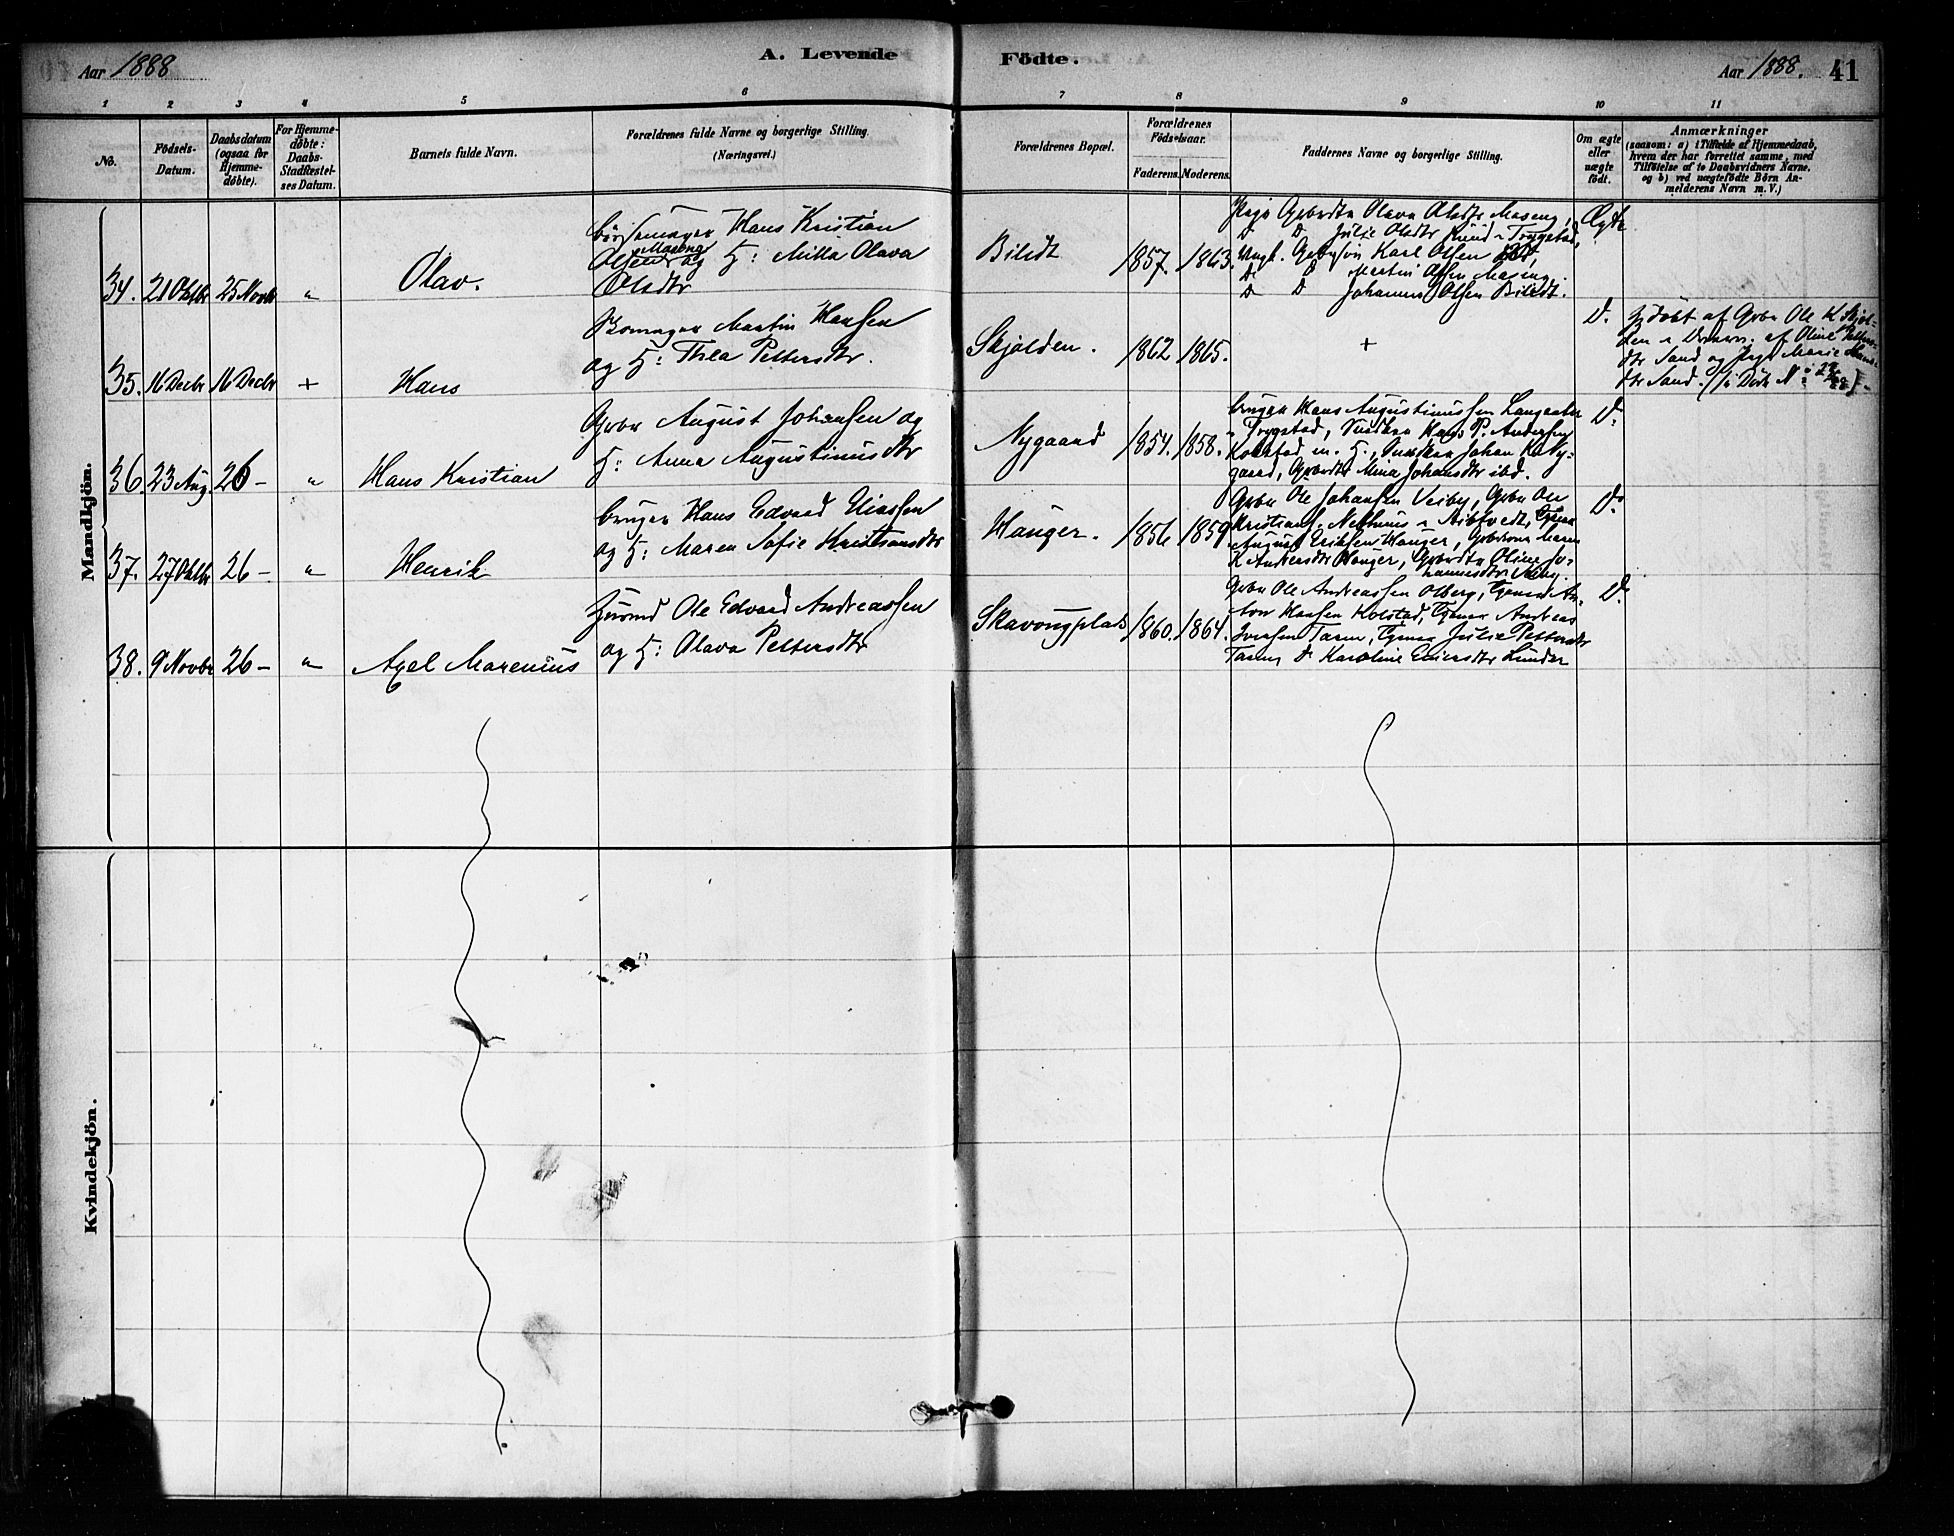 Aar 1888
A. Levende
Födte.
Aar 1888.
41
1 2 3 4 5 6 7 8 9 10 11
No.
Födsels-
Datum.
Daabsdatum
(ogsaa for
Hjemme-
döbte).
For Hjemme-
döbte:
Daabs-
Stadfæstel-
ses Datum.
Barnets fulde Navn.
Forældrenes fulde Navne og borgerlige Stilling.
(Næringsvei.)
Forældrenes Bopæl.
Forældrenes
Födselsaar.
Faderens.
Moderens.
Faddernes Navne og borgerlige Stilling.
Om ægte
eller
uægte
födt.
Anmærkninger
(saasom: a) i Tilfælde af Hjemmedaab,
hvem der har forrettet samme, med
Tilföielse af to Daabsvidners Navne,
og b) ved uægtefödte Börn An-
melderens Navn m. V.)
Mandkjön.
34. 21 Oktbr 25 Novbr "
Olav.
Hans Kristian
Olsen Maseng og H: Milla Olava
Olsdtr
Bilidt
1857. 1863.
Pige Gbrdtr Olava Olsdtr Maseng,
D D Julie Olsdtr Trygstad,
Ungk. Gbrsøn Karl Olsen
D D Martin Olsen Maseng
D D Johannes Olsen Bilidt.
Ægte
35. 16 Decbr 16 Decbr +
Hans
Martin Hansen
og H: Thea Pettersdtr.
Skjolden.
1862 1865.
+
D.
Hjdøbt af Gbr Ole K Skjol-
den af Oline Petters-
dtr Sand og Pige Marie
dtr Sand.
36. 23 Aug. 26 - "
Hans Kristian
Gbr August Johansen og
H: Anna Augustinusdtr
Nygaard
1854. 1858.
bruger Hans Augustinussen
Trygstad, Hans P. Andersen
Kolstad m. H., Johan K Ny-
gaard, Gbrdtr Mina Johansdtr ibd.
D.
37. 27 Oktbr 26 - "
Henrik
bruger Hans Edvard Eliassen
og H: Maren Sofie Kristiansdtr
Hauger.
1856 1859
Gbr Ole Johansen Veiby, Gbr Ole
August Eriksen Hauger, Maren
K Andersdtr Hauger, Gbrdtr Oline Jo-
hannesdtr Veiby.
D.
38. 9 Novbr 26 - "
Axel Marenius
Husmd Ole Edvard Andreassen
og H: Olava Pettersdtr
Skavongplads
1860. 1864.
Gbr Ole Andreassen Olberg, Tjener An-
ton Hansen Kolstad, Tjener Andreas
Iversen Taren, Tjener Julie Pettersdtr
Taren D Karoline Lunder
D.
Kvindekjön.